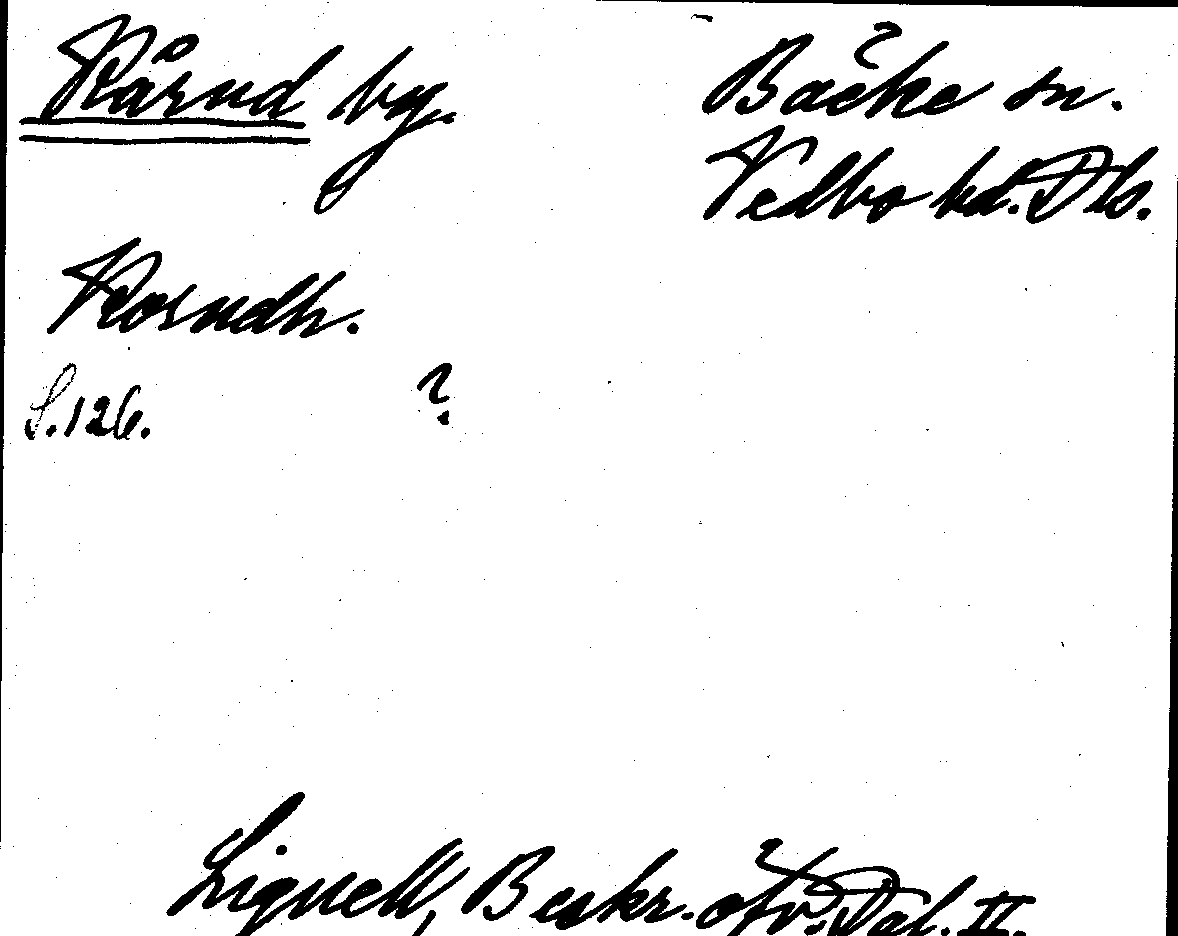 Kårud by.
Bäcke sn.
Vedbo hd. Dls.
Korudh.
S. 126. ?
Lignell, Beskr. öfv. Dal. II.